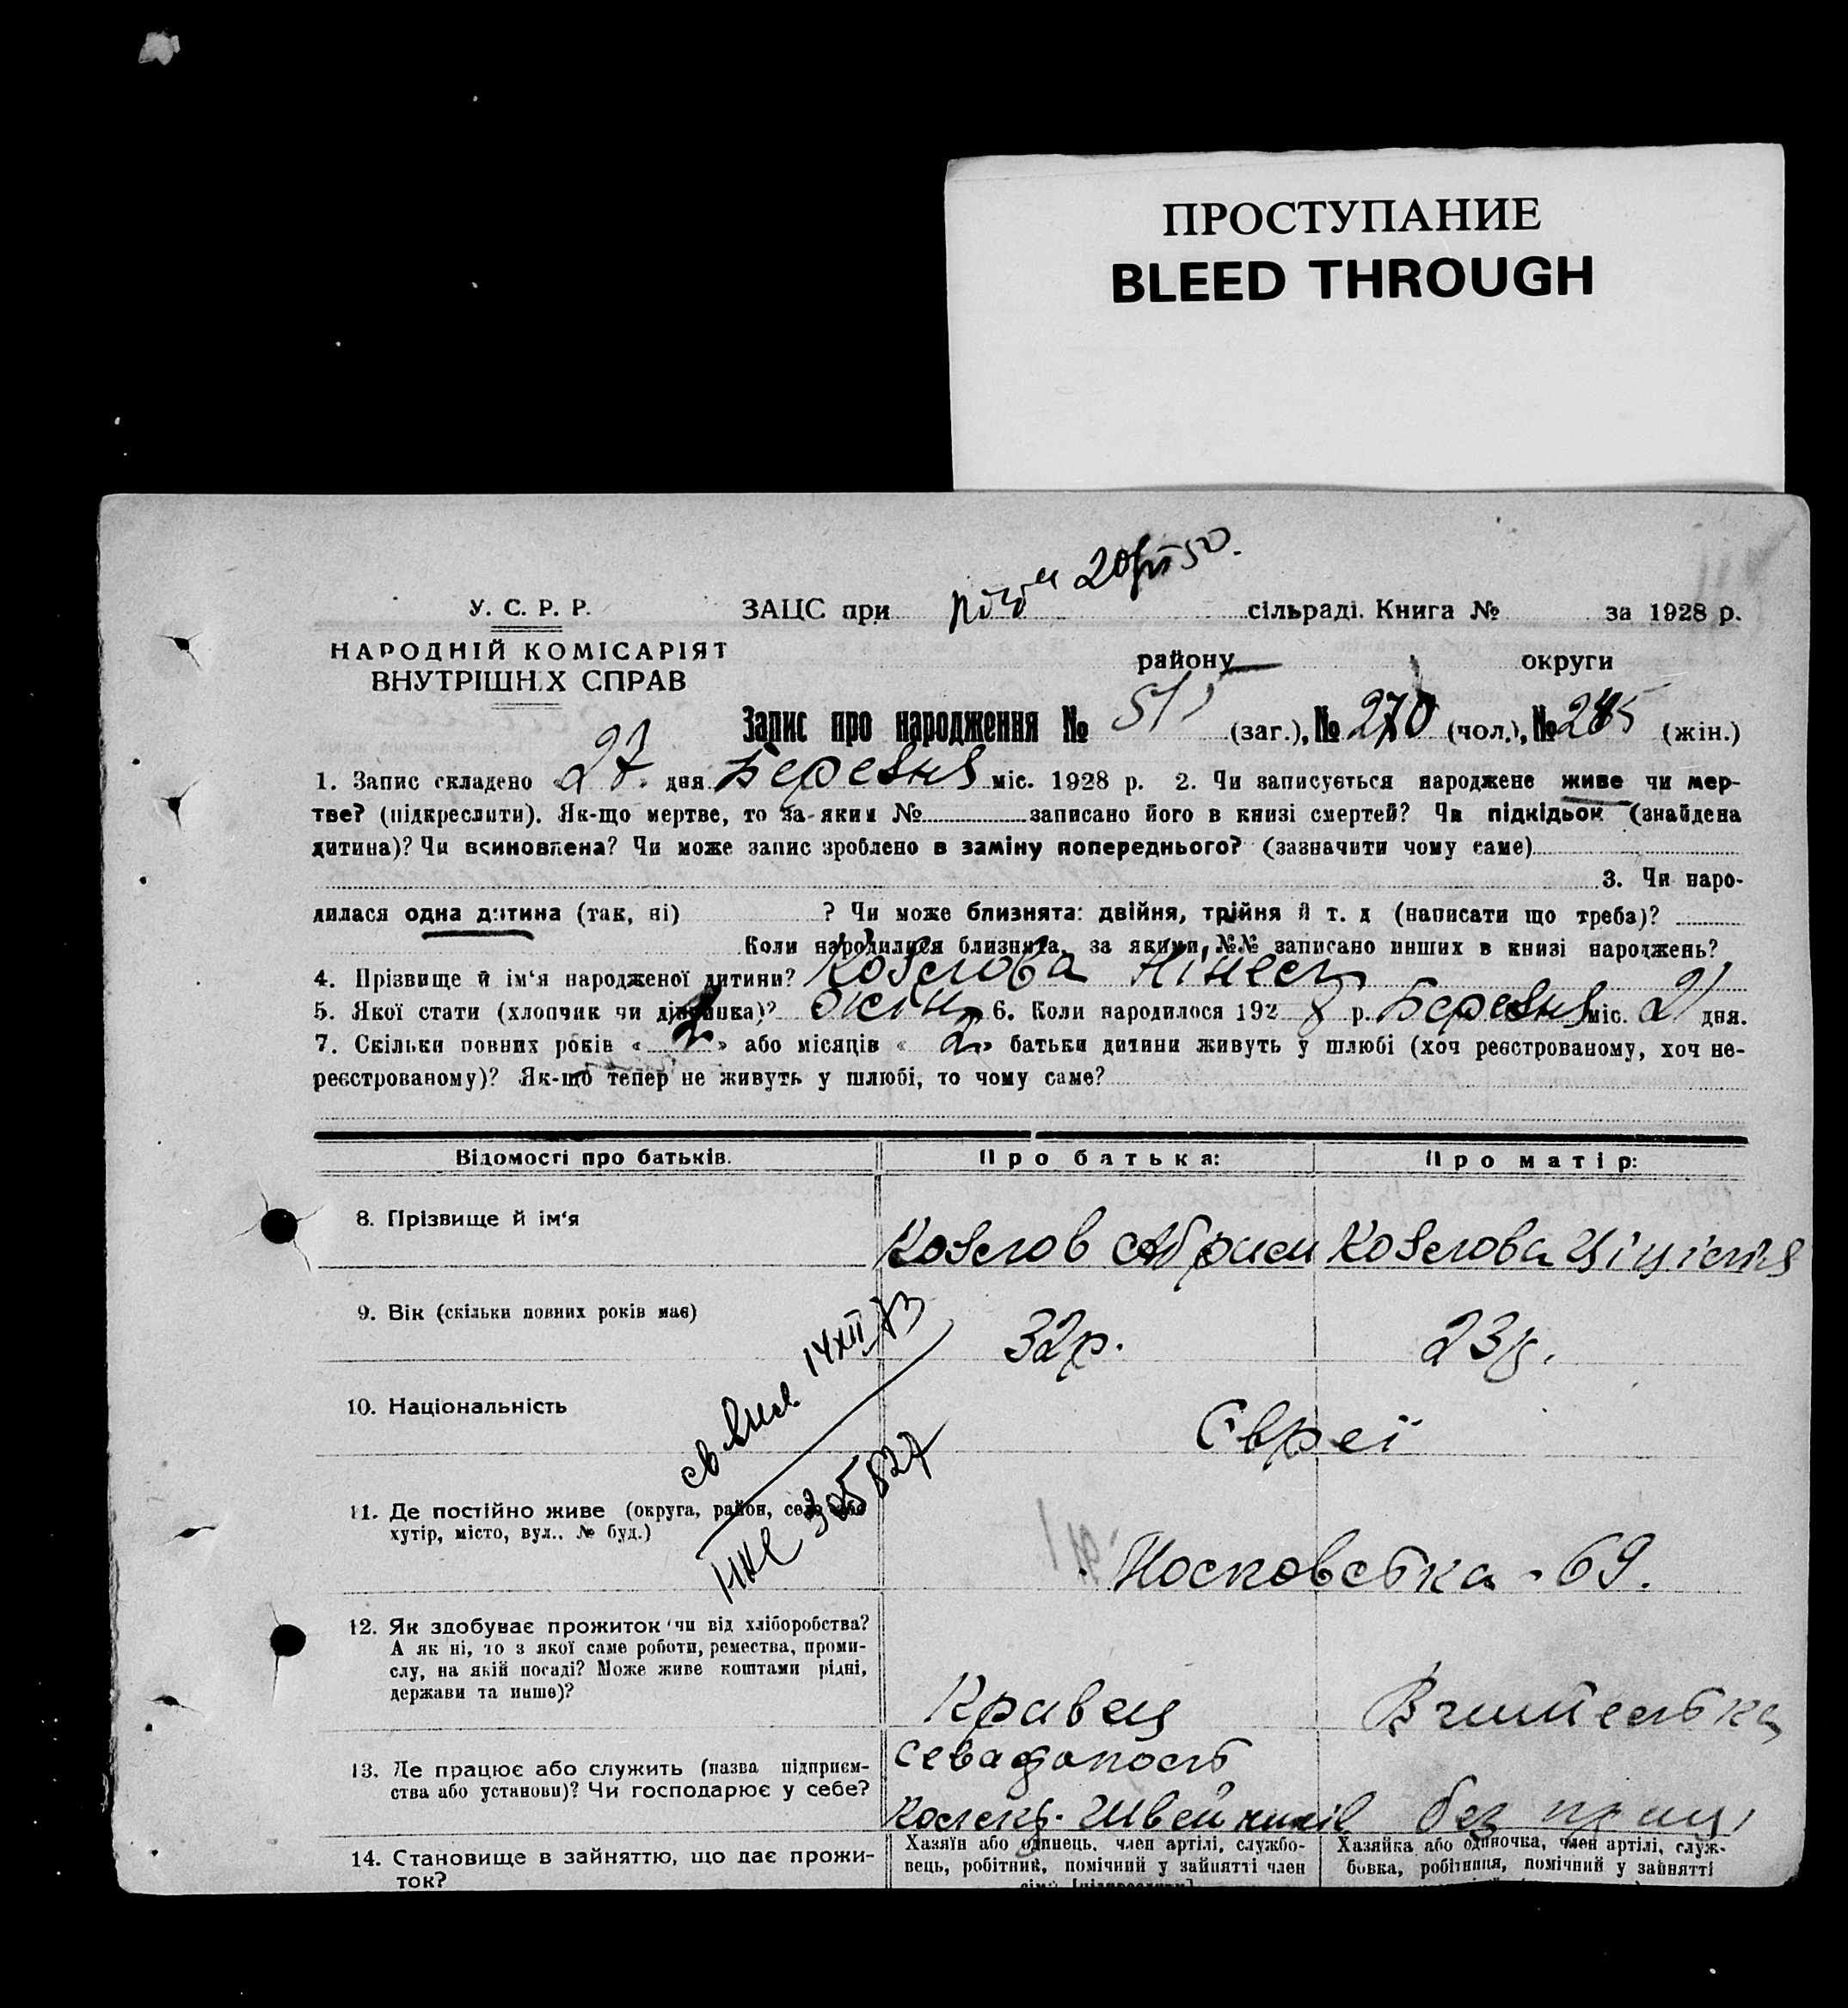 ПРОСТУПАНИЕ
BLEED THROUGH
20/VI 50.
У. С. Р. Р.
ЗАЦС при сільраді. Книга № за 1928 р.
НАРОДНІЙ КОМІСАРІЯТ
ВНУТРІШНІХ СПРАВ
району округи
Запис про народження № 515 (заг.), № 270 (чол.), № 245 (жін.)
1. Запис складено «27» дня Березня міс. 1928 р. 2. Чи записується народжене живе чи мер-
тве? (підкреслити). Як-що мертве, то за яким № записано його в книзі смертей? Чи підкідьок (знайдена
дитина)? Чи всиновлена? Чи може запис зроблено в заміну попереднього? (зазначити чому саме)
3. Чи наро-
дилася одна дитина (так, ні) ? Чи може близнята: двійня, трійня й т. д (написати що треба)?
Коли народилися близнята, за якими №№ записано инших в книзі народжень?
4. Прізвище й ім‘я народженої дитини? Козлова Нінель
5. Якої стати (хлопчик чи дівчинка)? жін. 6. Коли народилося 1928 р. Березня міс. 21 дня.
7. Скільки повних років « » або місяців «2» батьки дитини живуть у шлюбі (хоч реєстрованому, хоч не-
реєстрованому)? Як-що тепер не живуть у шлюбі, то чому саме?
Відомості про батьків. Про батька: Про матір:
8. Прізвище й ім‘я
Козлов Абрам Козлова Ціцілія
9. Вік (скільки повних років має)
32р. 23р.
14 XII 73
10. Національність
Євреї
305827
11. Де постійно живе (округа, район, село або
хутір, місто, вул.. № буд.)
Московська - 69.
12. Як здобуває прожиток чи від хліборобства?
А як ні, то з якої саме роботи, ремества, проми-
слу, на якій посаді? Може живе коштами рідні,
держави та инше)?
Кравець Вчителька
13. Де працює або служить (назва підприєм-
ства або установи)? Чи господарює у себе?
Колект. Швейників без праці
14. Становище в зайняттю, що дає прожи-
ток?
Хазяїн або одинець, член артілі, службо-
вець, робітник, помічний у зайнятті член
Хазяйка або одиночка, член артілі, служ-
бовка, робітниця, помічний у зайнятті